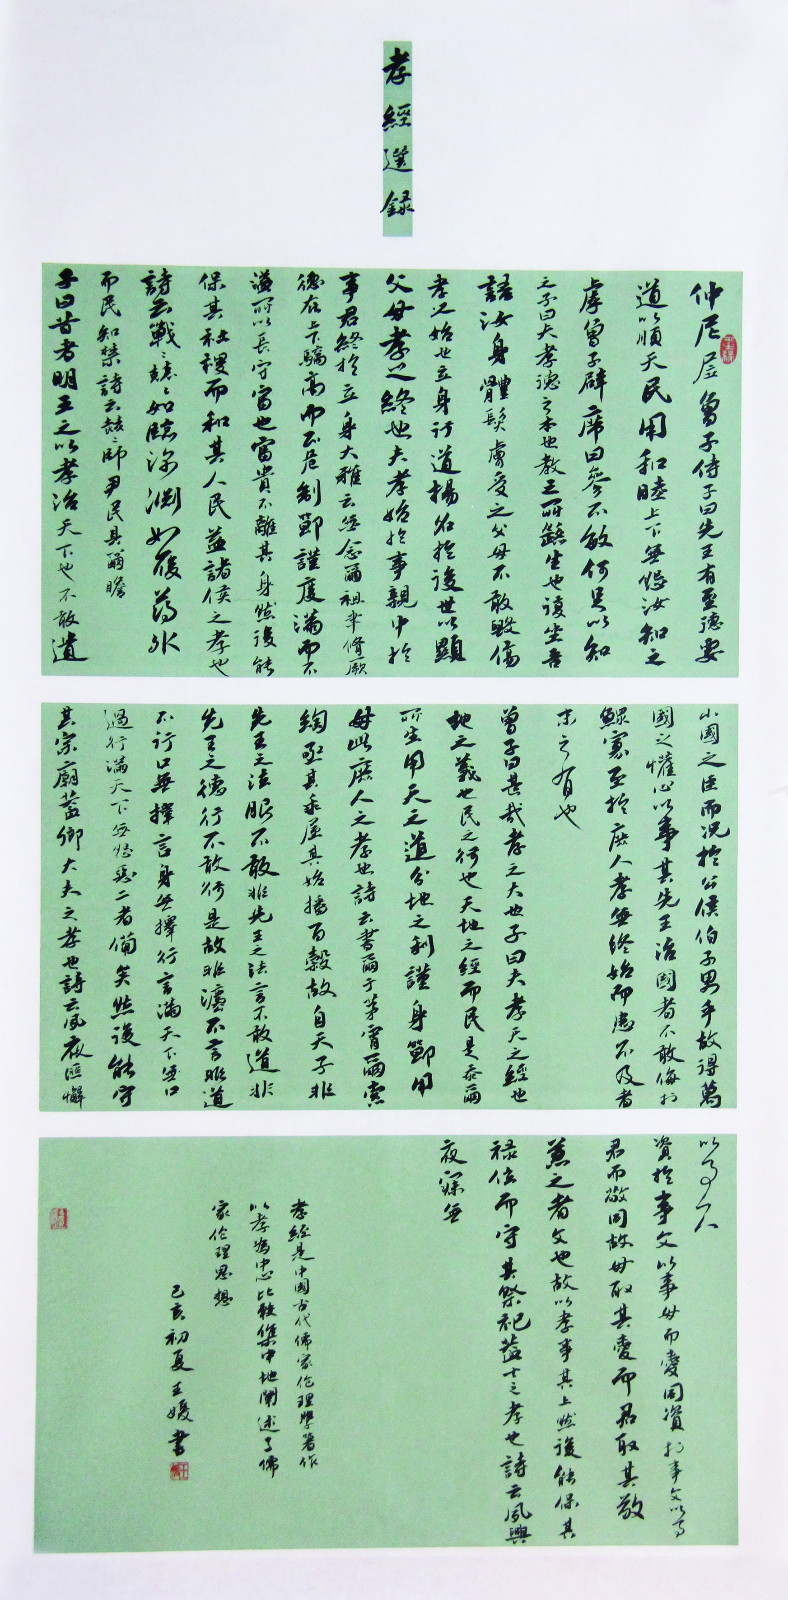 孝經選録
仲尼居曾子侍子曰先王有至德要
道以順天民用和睦上下無怨汝知之
乎曾子辟席曰參不敏何足以知
之子曰夫孝德之本也教之所繇生也復坐吾
語汝身體髮膚受之父母不敢毀傷
孝之始也立身行道揚名於後世以顯
父母孝之終也夫孝始於事親中於
事君終於立身大雅云無念爾祖聿脩厥
德在上不驕高而不危制節謹度滿而不
溢所以長守富也富貴不離其身然後能
保其社稷而和其人民蓋諸侯之孝也
詩云戰戰兢兢如臨深淵如履薄氷
而民知禁詩云赫赫師尹民具爾瞻
子曰昔者明王之以孝治天下也不敢遺
小國之臣而況於公侯伯子男乎故得萬
國之懽心以事其先王治國者不敢侮於
鰥寡至於庶人孝無終始而患不及者
未之有也
曾子曰甚哉孝之大也子曰夫孝天之經也
地之義也民之行也天地之經而民是
所生用天之道分地之利謹身節用
母此庶人之孝也詩云書爾于茅宵爾索
綯亟其乘屋其始播百穀故自天子非
先王之法服不敢非先王之法言不敢道非
先王之德行不敢行是故非灋不言非道
不行口無擇言身無擇行言滿天下無口
過行滿天下無怨惡二者備矣然後能守
其宗廟蓋卿大夫之孝也詩云夙夜匪懈
以事一人
資於事父以事母而愛同資於事父以事
君而敬同故母取其愛而君取其敬
兼之者父也故以孝事其上然後能保其
祿位而守其祭祀蓋士之孝也詩云夙興
夜寐無
孝經是中國古代儒家伦理學著作
以孝為中心比較集中地闡述了儒
家伦理思想
己亥初夏王媛書